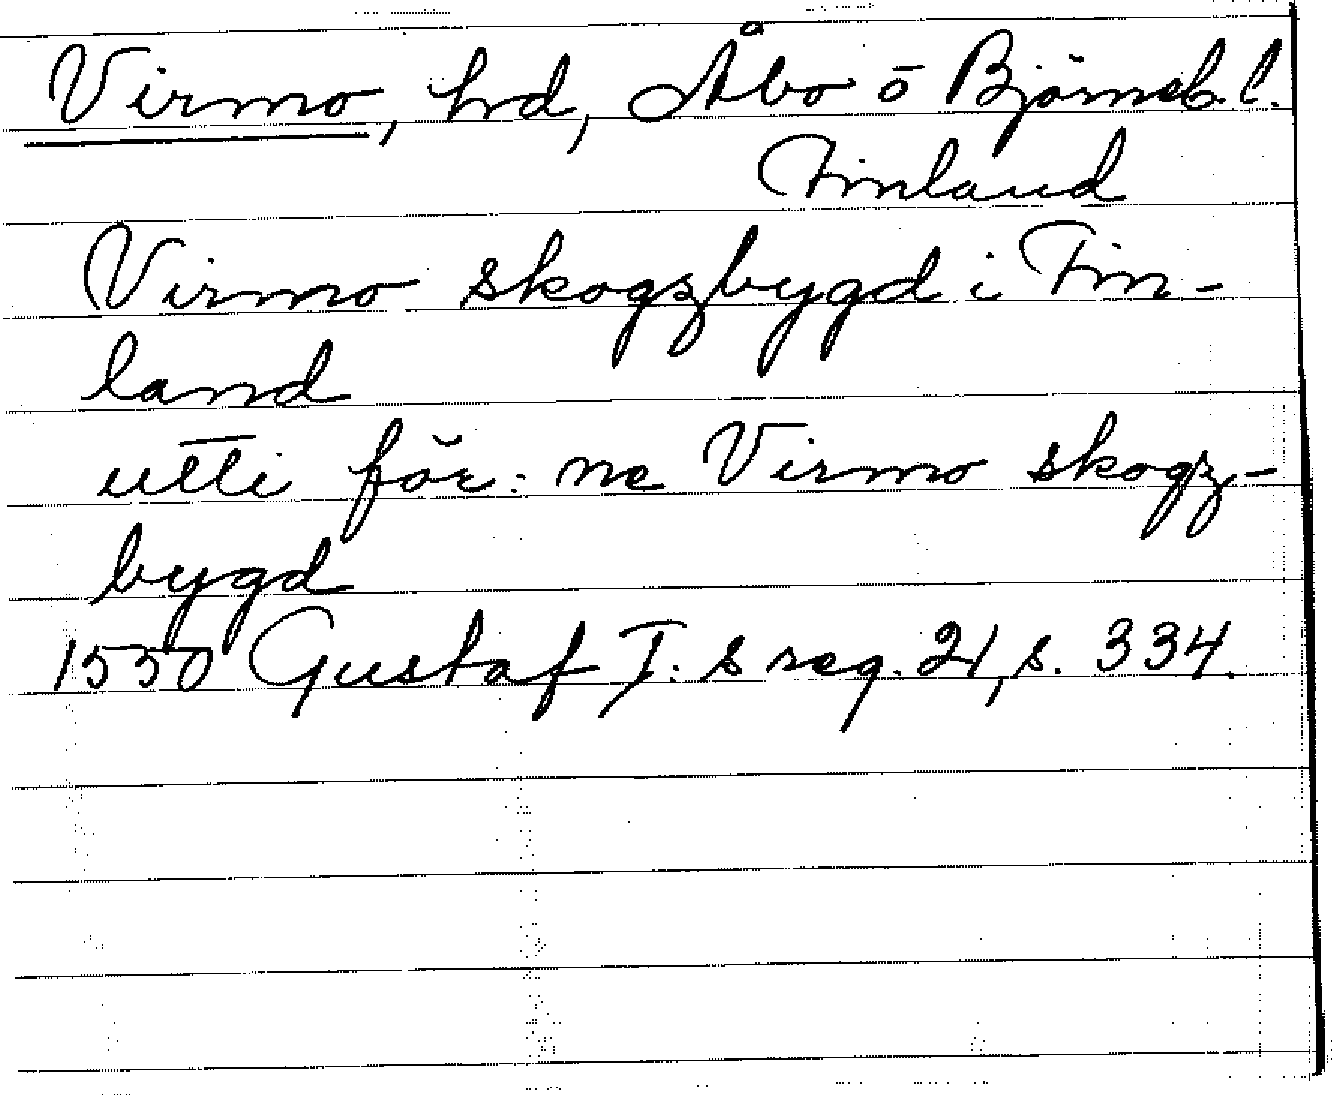 Virmo, hd, Åbo o Björneb. l.
Finland
Virmo skogzbygd i Fin-
land
utti för:ne Virmo skogz-
bygd
1550 Gustaf I:s reg. 21, s. 334.